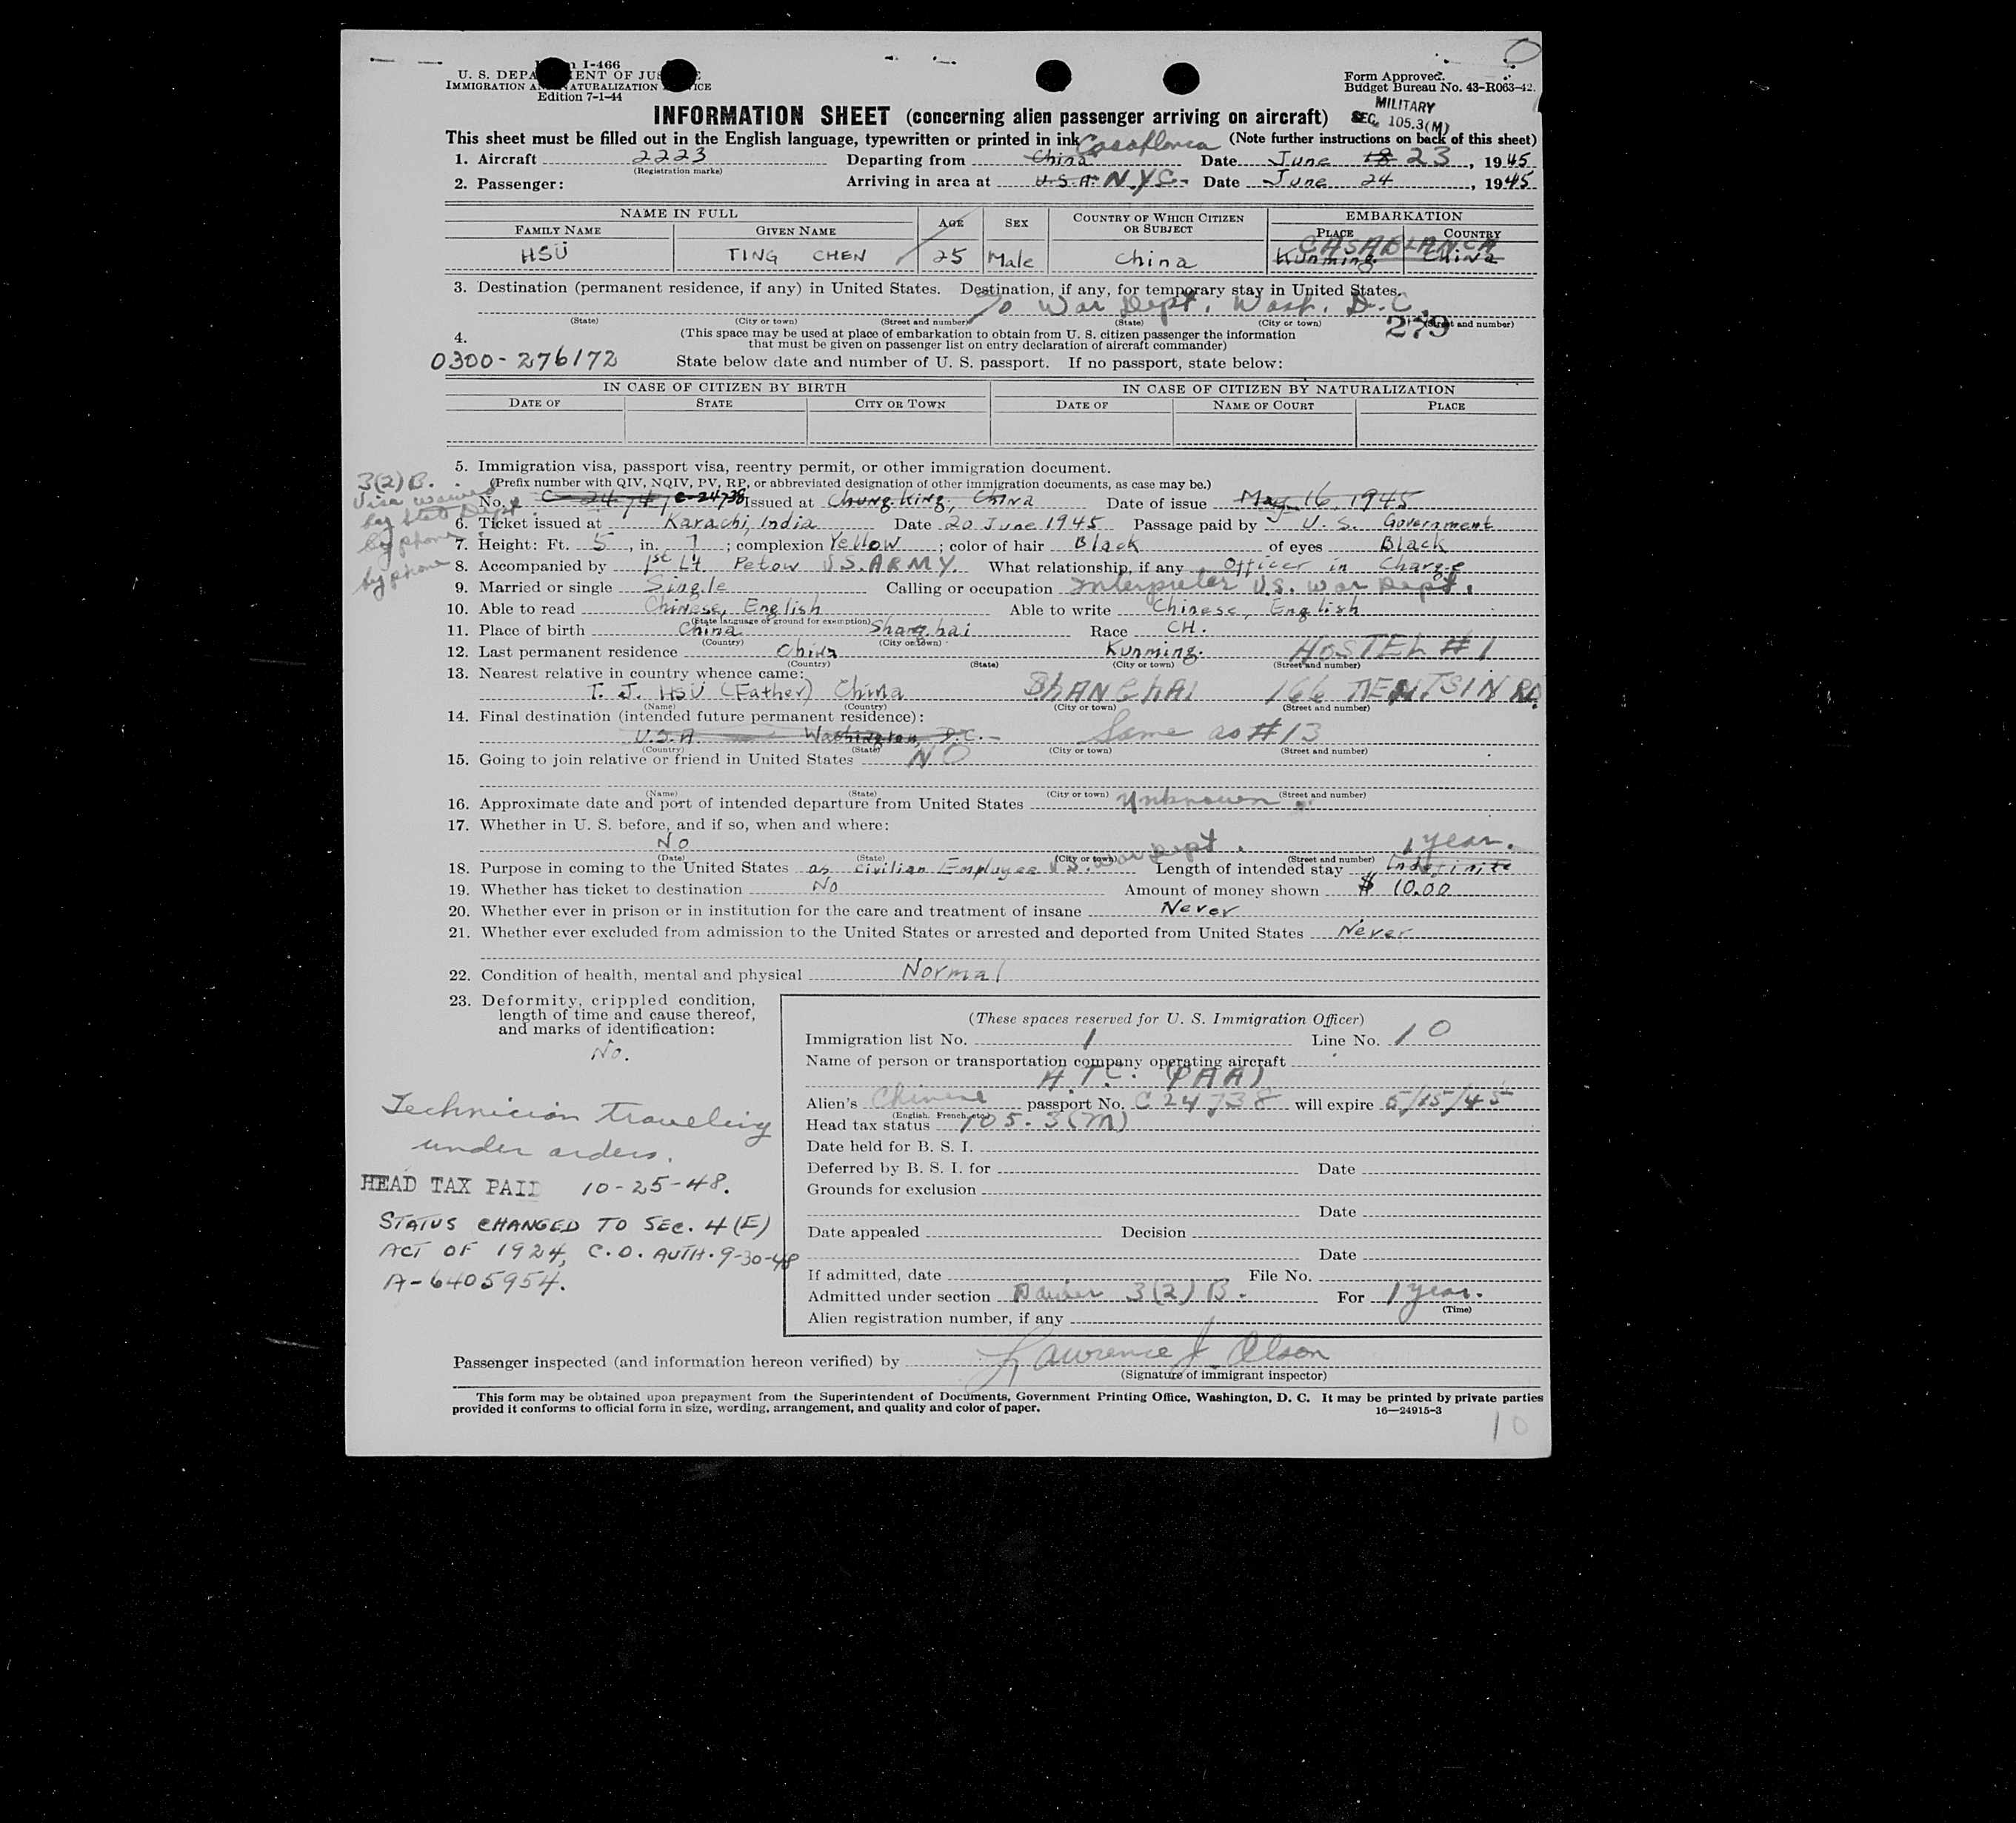 Form I-466
U. S. DEPARTMENT OF JUSTICE
IMMIGRATION AND NATURALIZATION SERVICE
Edition 7-1-44
Form Approved.
Budget Bureau No. 43-R063-42.
MILITARY
SEC. 105.3(M)
INFORMATION SHEET (concerning alien passenger arriving on aircraft)
This sheet must be filled out in the English language, typewritten or printed in ink (Note further instructions on back of this sheet)
Casablanca
1. Aircraft 2223 Departing from China Date June 18 23, 1945
(Registration marks)
2. Passenger: Arriving in area at U.S.A. N.Y.C. Date June 24, 1945
NAME IN FULL AGE SEX COUNTRY OF WHICH CITIZEN OR SUBJECT EMBARKATION
FAMILY NAME GIVEN NAME PLACE COUNTRY
CASABLANCA
HSU TING CHEN 25 Male China Kunming China
3. Destination (permanent residence, if any) in United States. Destination, if any, for temporary stay in United States.
% War Dept. Wash. D.C.
(State) (City or town) (Street and number) (State) (City or town) (Street and number)
279
4. (This space may be used at place of embarkation to obtain from U. S. citizen passenger the information
that must be given on passenger list on entry declaration of aircraft commander)
0300-276172 State below date and number of U. S. passport. If no passport, state below:
IN CASE OF CITIZEN BY BIRTH IN CASE OF CITIZEN BY NATURALIZATION
DATE OF STATE CITY OR TOWN DATE OF NAME OF COURT PLACE
5. Immigration visa, passport visa, reentry permit, or other immigration document.
(Prefix number with QIV, NQIV, PV, RP, or abbreviated designation of other immigration documents, as case may be.)
3(2)B.
Visa waived
by State Dept
by phone
by phone
No. C-24741 C-24738 Issued at Chung King, China Date of issue May 16, 1945
6. Ticket issued at Karachi, India Date 20 June 1945 Passage paid by U. S. Government
7. Height: Ft. 5, in. 7; complexion Yellow; color of hair Black of eyes Black
8. Accompanied by 1st Lt Petow U.S. ARMY. What relationship, if any Officer in Charge
9. Married or single Single Calling or occupation Interpreter U.S. War Dept.
10. Able to read Chinese, English Able to write Chinese, English
(State language or ground for exemption)
11. Place of birth China Shanghai Race CH.
(Country) (City or town)
12. Last permanent residence China Kunming. HOSTEL #1
(Country) (State) (City or town) (Street and number)
13. Nearest relative in country whence came:
T. J. HSU (Father) China SHANGHAI 166 TIENTSIN RD.
(Name) (Country) (City or town) (Street and number)
14. Final destination (intended future permanent residence):
U.S.A. Washington, D.C. Same as #13
(Country) (State) (City or town) (Street and number)
15. Going to join relative or friend in United States NO
(Name) (State) (City or town) (Street and number)
16. Approximate date and port of intended departure from United States Unknown.
17. Whether in U. S. before, and if so, when and where:
No
(Date) (State) (City or town) (Street and number)
1 year.
18. Purpose in coming to the United States as civilian Employee U.S. War Dept. Length of intended stay Indefinite
19. Whether has ticket to destination No Amount of money shown $ 10.00
20. Whether ever in prison or in institution for the care and treatment of insane Never
21. Whether ever excluded from admission to the United States or arrested and deported from United States Never
22. Condition of health, mental and physical Normal
23. Deformity, crippled condition,
length of time and cause thereof,
and marks of identification:
No.
Technician traveling
under orders.
HEAD TAX PAID 10-25-48.
STATUS CHANGED TO SEC. 4(E)
ACT OF 1924, C.O. AUTH. 9-30-48
A-6405954.
(These spaces reserved for U. S. Immigration Officer)
Immigration list No. 1 Line No. 10
Name of person or transportation company operating aircraft
A.T.C. (PAA)
Alien's Chinese passport No. C 24738 will expire 5/15/45
(English, French, etc.)
Head tax status 105.3(M)
Date held for B. S. I.
Deferred by B. S. I. for Date
Grounds for exclusion
Date
Date appealed Decision
Date
If admitted, date File No.
Admitted under section 3(2)B. For 1 year.
(Time)
Alien registration number, if any
Passenger inspected (and information hereon verified) by Lawrence J. Olson
(Signature of immigrant inspector)
This form may be obtained upon prepayment from the Superintendent of Documents, Government Printing Office, Washington, D. C. It may be printed by private parties
provided it conforms to official form in size, wording, arrangement, and quality and color of paper. 16—24915-3
10